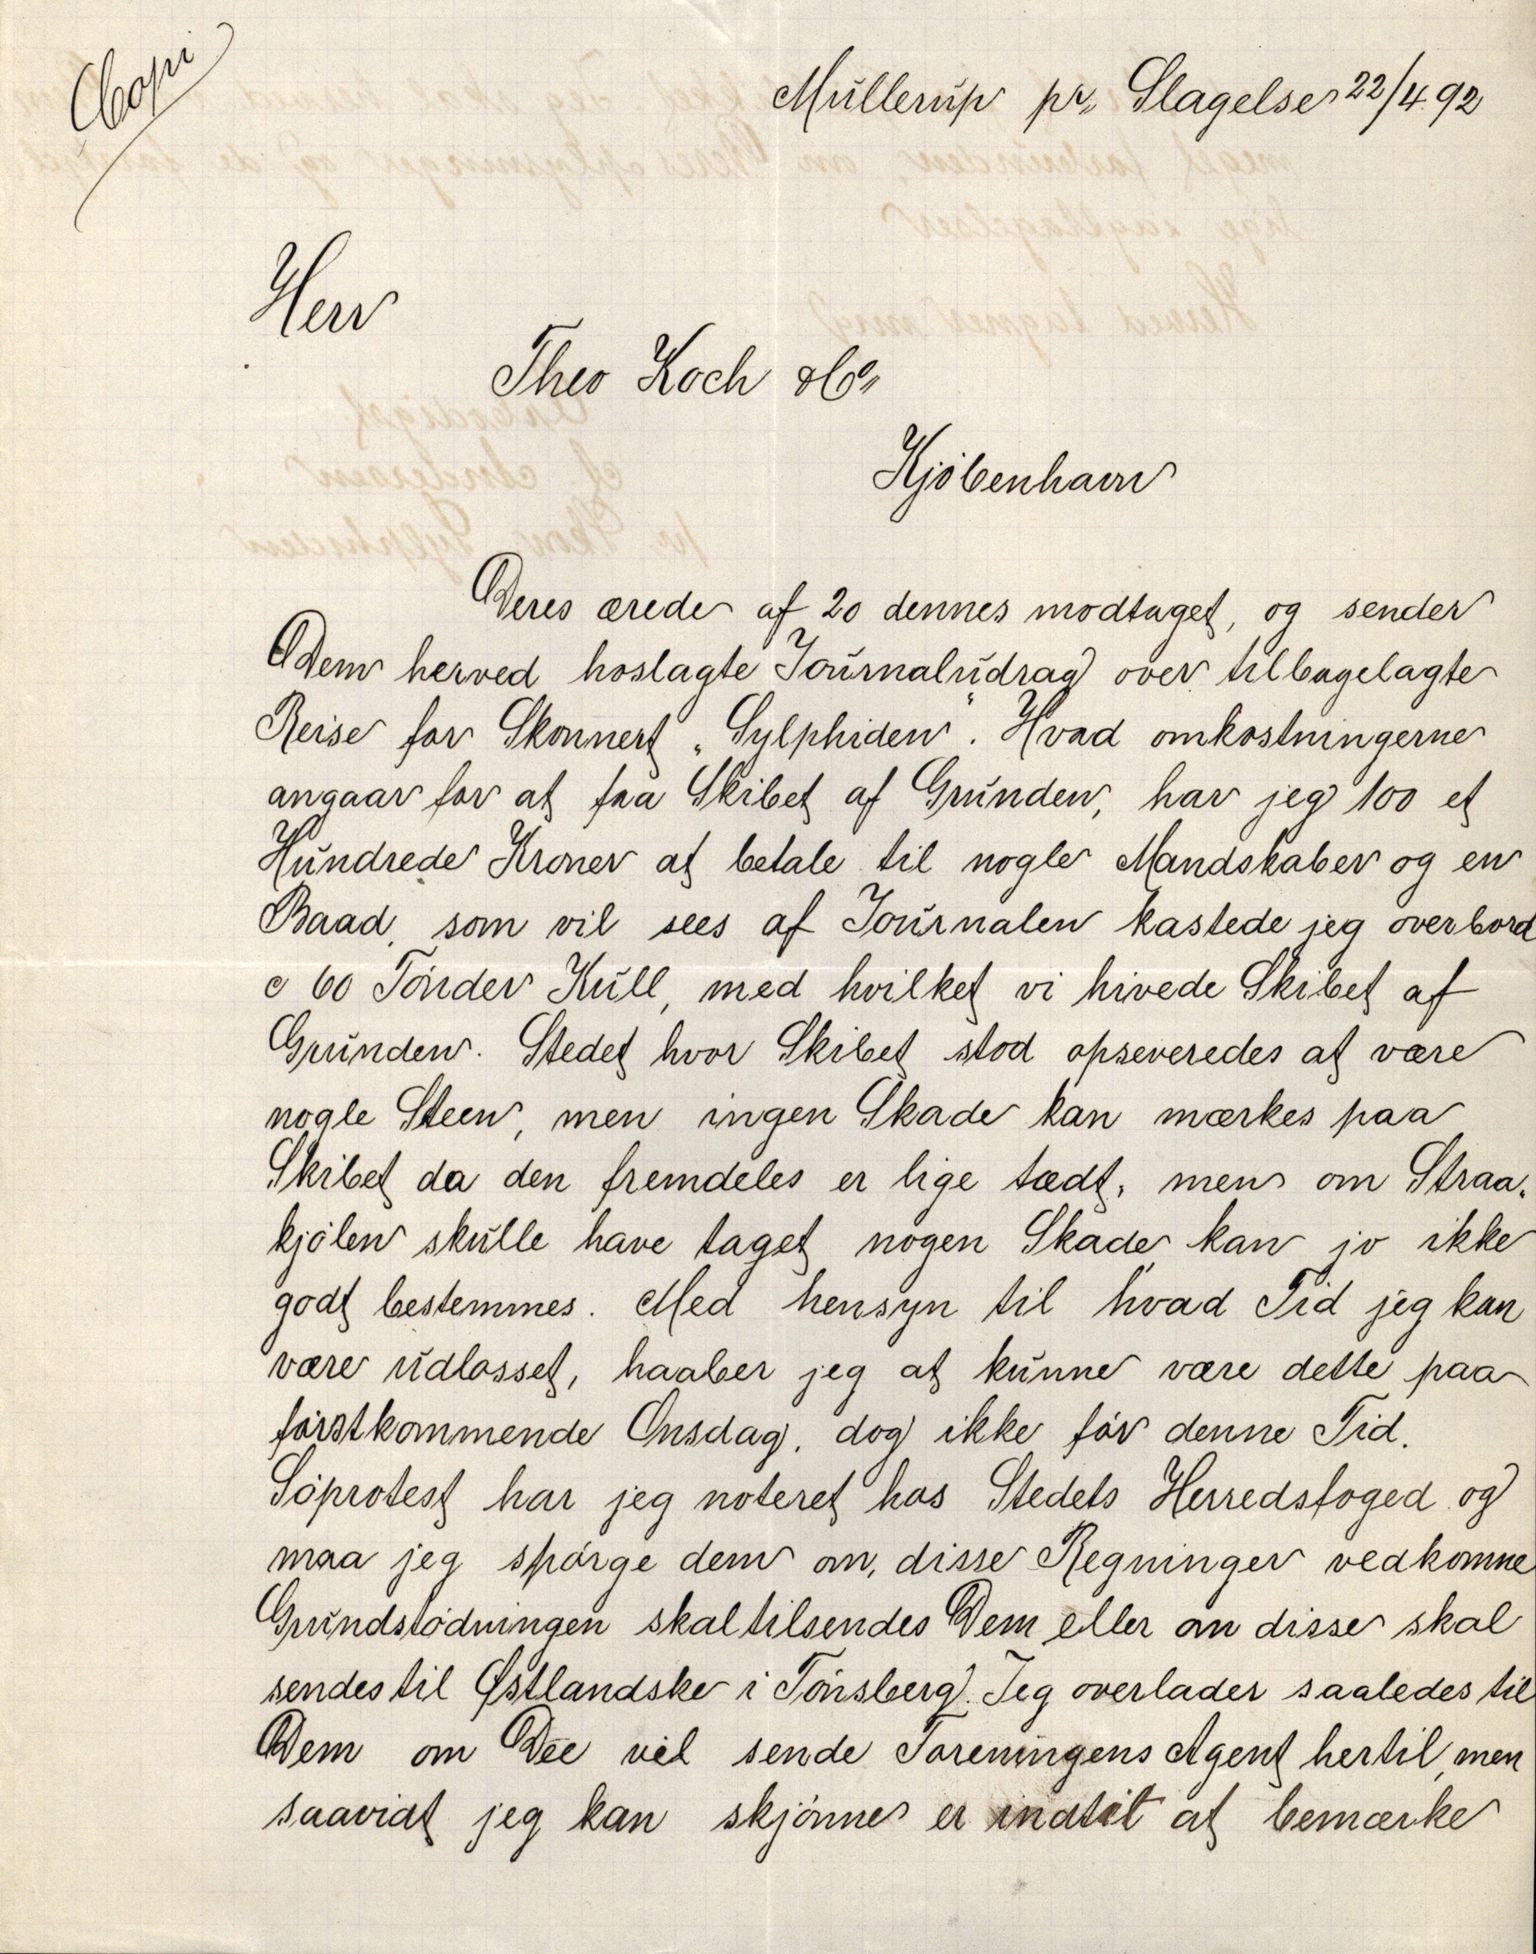 Copi
Mullerup pr. Slagelse 22/4 92
Herr
Theo Koch & Co
Kjöbenhavn
Deres ærede af 20 dennes modtaget, og sender
Dem herved hoslagte Journaludrag over tilbagelagte
Reise for Skonnert „Sylphiden“. Hvad omkostningerne
angaar for at faa Skibet af Grunden, har jeg 100 et
Hundrede Kroner at betale til nogle Mandskaber og en
Baad, som vil sees af Journalen kastede jeg overbord
c 60 Tönder Kull, med hvilket vi hivede Skibet af
Grunden. Stedet hvor Skibet stod opseveredes at være
nogle Steen, men ingen Skade kan mærkes paa
Skibet da den fremdeles er lige tædt, men om Straa-
kjölen skulle have taget nogen Skade kan jo ikke
godt bestemmes. Med hensyn til hvad Tid jeg kan
være udlosset, haaber jeg at kunne være dette paa
förstkommende Onsdag, dog ikke för denne Tid.
Söprotest har jeg noteret hos Stedets Herredsfoged og
maa jeg spörge dem om, disse Regninger vedkomne
Grundstödningen skal tilsendes Dem eller om disse skal
sendes til Østlandske i Tönsberg. Jeg overlader saaledes til
Dem om Dee vil sende Foreningens Agent hertil, men
saavidt jeg kan skjönne er indtit at bemærke